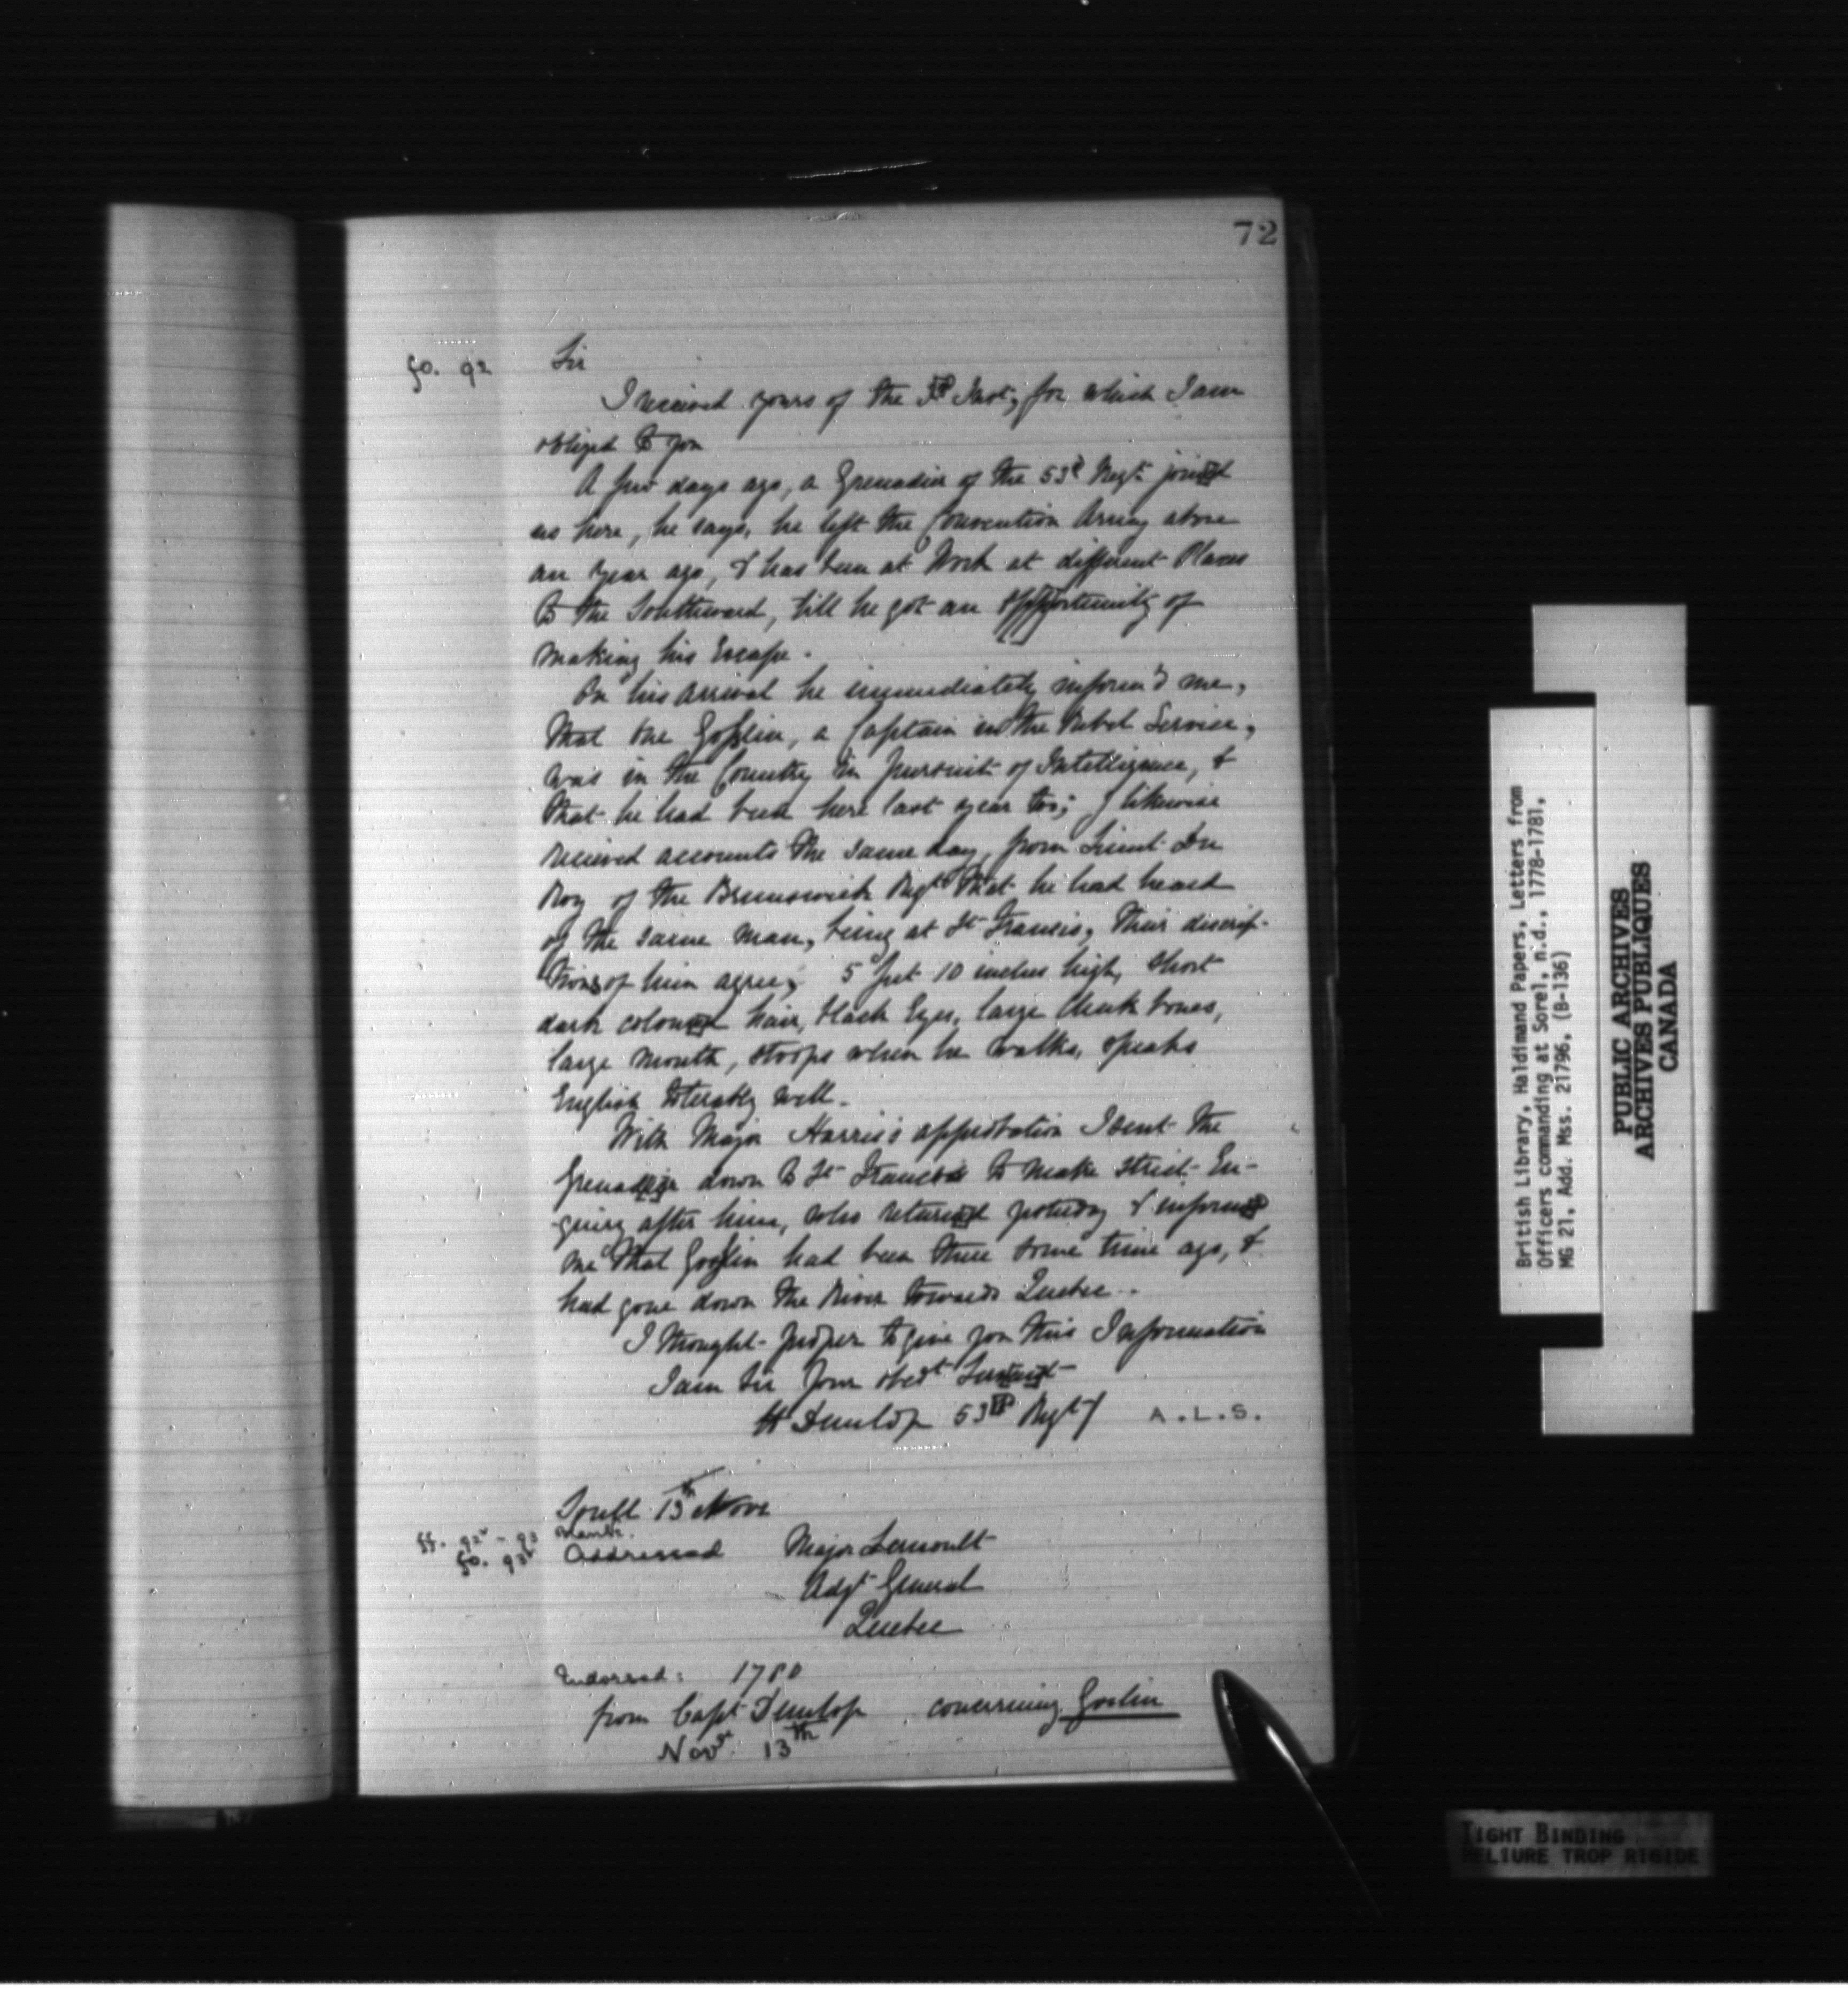 72
fo. 92
Sir
I received yours of the 3d Inst; for which I am
obliged to you
A few days ago, a Grenadier of the 53d Regt. joined
us here, he says, he left the Convention Army above
an Year ago, & has been at Work at different Places
to the Southward, till he got an opportunity of
making his Escape.
On his arrival he immediately inform'd me,
that one Gosslin, a Captain in the Rebel Service,
was in the Country in pursuit of Intelligence, &
that he had been here last year too; I likewise
recieved accounts the same day, from Lieut Du
Roy of the Brunswick Regt that he had heard
of the same man, being at St Francis, their descrip-
tions of him agree; 5 feet 10 inches high, short
dark coloured hair, black Eyes, large Cheek bones,
large mouth, stoops when he walks, speaks
English tolerably well.
With Major Harris's approbation I sent the
Grenadier down to St Francois to make strict En-
quiry after him, who returned yesterday & informed
me that Gosslin had been there some time ago, &
had gone down the River towards Quebec..
I thought proper to give you this Information
I am Sir Your obedt Servant
H Dunlop 53d Regt/ A.L.S.
Sorell 13th Novr
ff. 92v - 93 blank.
fo. 93v Addressed Major Lernoult
Adjt General
Quebec
Endorsed: 1780
from Capt Dunlop concerning Goslin
Novr. 13th
British Library, Haldimand Papers, Letters from
Officers commanding at Sorel, n.d., 1778-1781,
MG 21, Add. Mss. 21796, (B-136)
PUBLIC ARCHIVES
ARCHIVES PUBLIQUES
CANADA
TIGHT BINDING
RELIURE TROP RIGIDE